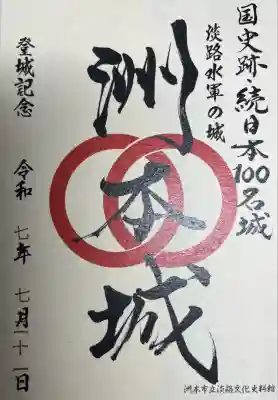 国史跡・続日本100名城
淡路水軍の城
洲本城
登城記念
令和七年七月二十一日
洲本市立淡路文化史料館